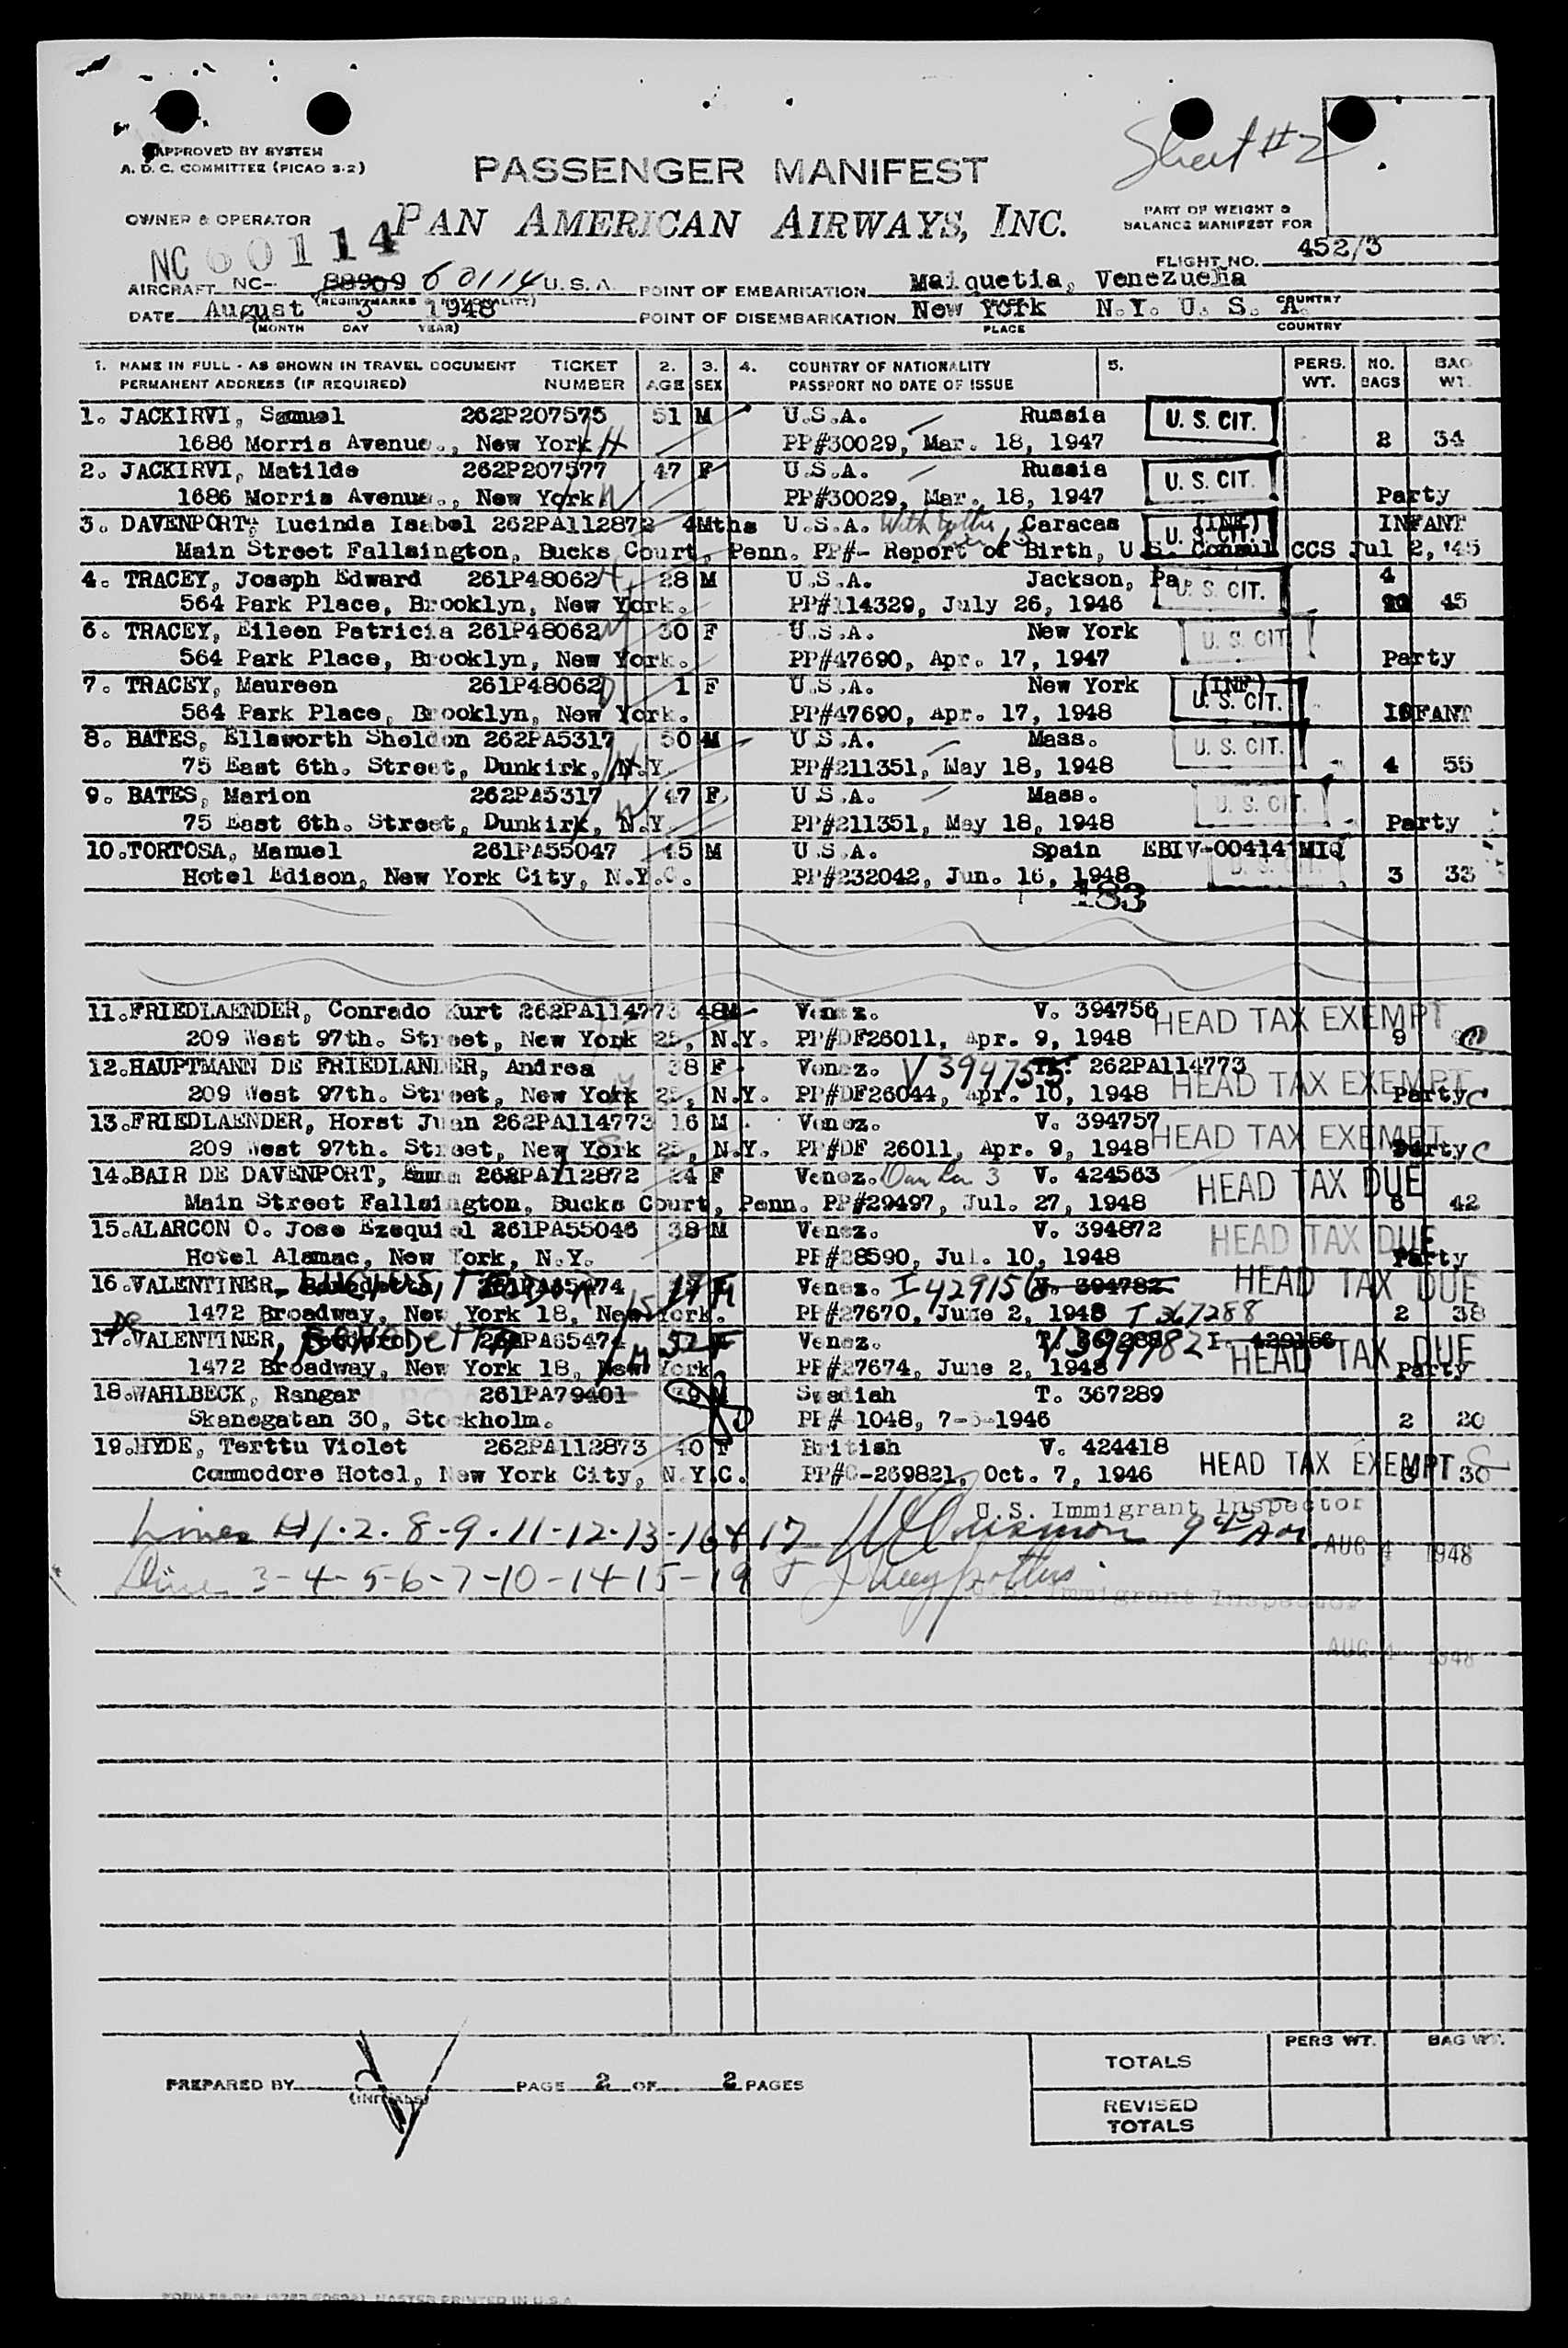 APPROVED BY SYSTEM
A. D. C. COMMITTEE (PICAO 3-2)
Sheet #2
PASSENGER MANIFEST
OWNER & OPERATOR
PAN AMERICAN AIRWAYS, INC.
PART OF WEIGHT &
BALANCE MANIFEST FOR
NC 60114
FLIGHT NO. 452/3
AIRCRAFT NC- 88909 60114 U.S.A.
(REGIST. MARKS & NATIONALITY)
POINT OF EMBARKATION Maiquetia, Venezuela
DATE August 3 1948
(MONTH DAY YEAR)
POINT OF DISEMBARKATION New York N.Y. U. S. A.
PLACE COUNTRY
1. NAME IN FULL - AS SHOWN IN TRAVEL DOCUMENT TICKET 2. 3. 4. COUNTRY OF NATIONALITY 5. PERS. NO. BAG
PERMANENT ADDRESS (IF REQUIRED) NUMBER AGE SEX PASSPORT NO DATE OF ISSUE WT. BAGS WT.
1. JACKIRVI, Samuel 262P207575 51 M U.S.A. Russia U. S. CIT.
1686 Morris Avenue., New York PP#30029, Mar. 18, 1947 2 34
2. JACKIRVI, Matilde 262P207577 47 F U.S.A. Russia U. S. CIT.
1686 Morris Avenue., New York PP#30029, Mar. 18, 1947 Party
3. DAVENPORT, Lucinda Isabel 262PA112872 4Mths U.S.A. Caracas (INF) U. S. CIT. INFANT
Main Street Fallsington, Bucks Court, Penn. PP#- Report of Birth, U.S. Consul CCS Jul 2, '45
4. TRACEY, Joseph Edward 261P48062 28 M U.S.A. Jackson, Pa. U. S. CIT. 4
564 Park Place, Brooklyn, New York. PP#114329, July 26, 1946 45
6. TRACEY, Eileen Patricia 261P48062 30 F U.S.A. New York U. S. CIT
564 Park Place, Brooklyn, New York. PP#47690, Apr. 17, 1947 Party
7. TRACEY, Maureen 261P48062 1 F U.S.A. New York (INF) U. S. CIT.
564 Park Place, Brooklyn, New York. PP#47690, Apr. 17, 1948 INFANT
8. BATES, Ellsworth Sheldon 262PA5317 50 M U.S.A. Mass. U. S. CIT.
75 East 6th. Street, Dunkirk, N.Y. PP#211351, May 18, 1948 4 55
9. BATES, Marion 262PA5317 47 F U.S.A. Mass. U. S. CIT.
75 East 6th. Street, Dunkirk, N.Y. PP#211351, May 18, 1948 Party
10. TORTOSA, Manuel 261PA55047 45 M U.S.A. Spain EBIV-00414 MIQ
Hotel Edison, New York City, N.Y.C. PP#232042, Jun. 16, 1948 U. S. CIT. 3 33
183
11. FRIEDLAENDER, Conrado Kurt 262PA114773 48M Venez. V. 394756 HEAD TAX EXEMPT
209 West 97th. Street, New York 25, N.Y. PP#DF26011, Apr. 9, 1948 9
12. HAUPTMANN DE FRIEDLANDER, Andrea 38 F Venez. V 394755 262PA114773 HEAD TAX EXEMPT
209 West 97th. Street, New York 25, N.Y. PP#DF26044, Apr. 10, 1948 Party C
13. FRIEDLAENDER, Horst Juan 262PA114773 16 M Venez. V. 394757 HEAD TAX EXEMPT
209 West 97th. Street, New York 25, N.Y. PP#DF 26011, Apr. 9, 1948 Party C
14. BAIR DE DAVENPORT, Emma 262PA112872 24 F Venez. V. 424563 HEAD TAX DUE
Main Street Fallsington, Bucks Court, Penn. PP#29497, Jul. 27, 1948 6 42
15. ALARCON O. Jose Ezequiel 261PA55046 38 M Venez. V. 394872 HEAD TAX DUE
Hotel Alamac, New York, N.Y. PP#28590, Jul. 10, 1948 Party
16. VALENTINER, Venez. I 429156 V. 394782 HEAD TAX DUE
1472 Broadway, New York 18, New York. PP#27670, June 2, 1948 T 367288 2 38
17. VALENTINER, BENEDETTA 261PA65474 52 F Venez. V 394782 I. 429156 HEAD TAX DUE
1472 Broadway, New York 18, New York PP#27674, June 2, 1948 Party
18. WAHLBECK, Rangar 261PA79401 Swedish T. 367289
Skanegatan 30, Stockholm. PP# 1048, 7-6-1946 2 20
19. HYDE, Terttu Violet 262PA112873 40 F British V. 424418
Commodore Hotel, New York City, N.Y.C. PP#C-269821, Oct. 7, 1946 HEAD TAX EXEMPT 30
U.S. Immigrant Inspector
Lines 1-2-8-9-11-12-13-16 & 17 AUG 4 1948
Lines 3-4-5-6-7-10-14-15-19
U.S. Immigrant Inspector
AUG 4 1948
PREPARED BY (INITIALS) PAGE 2 OF 2 PAGES
PERS WT. BAG WT.
TOTALS
REVISED
TOTALS